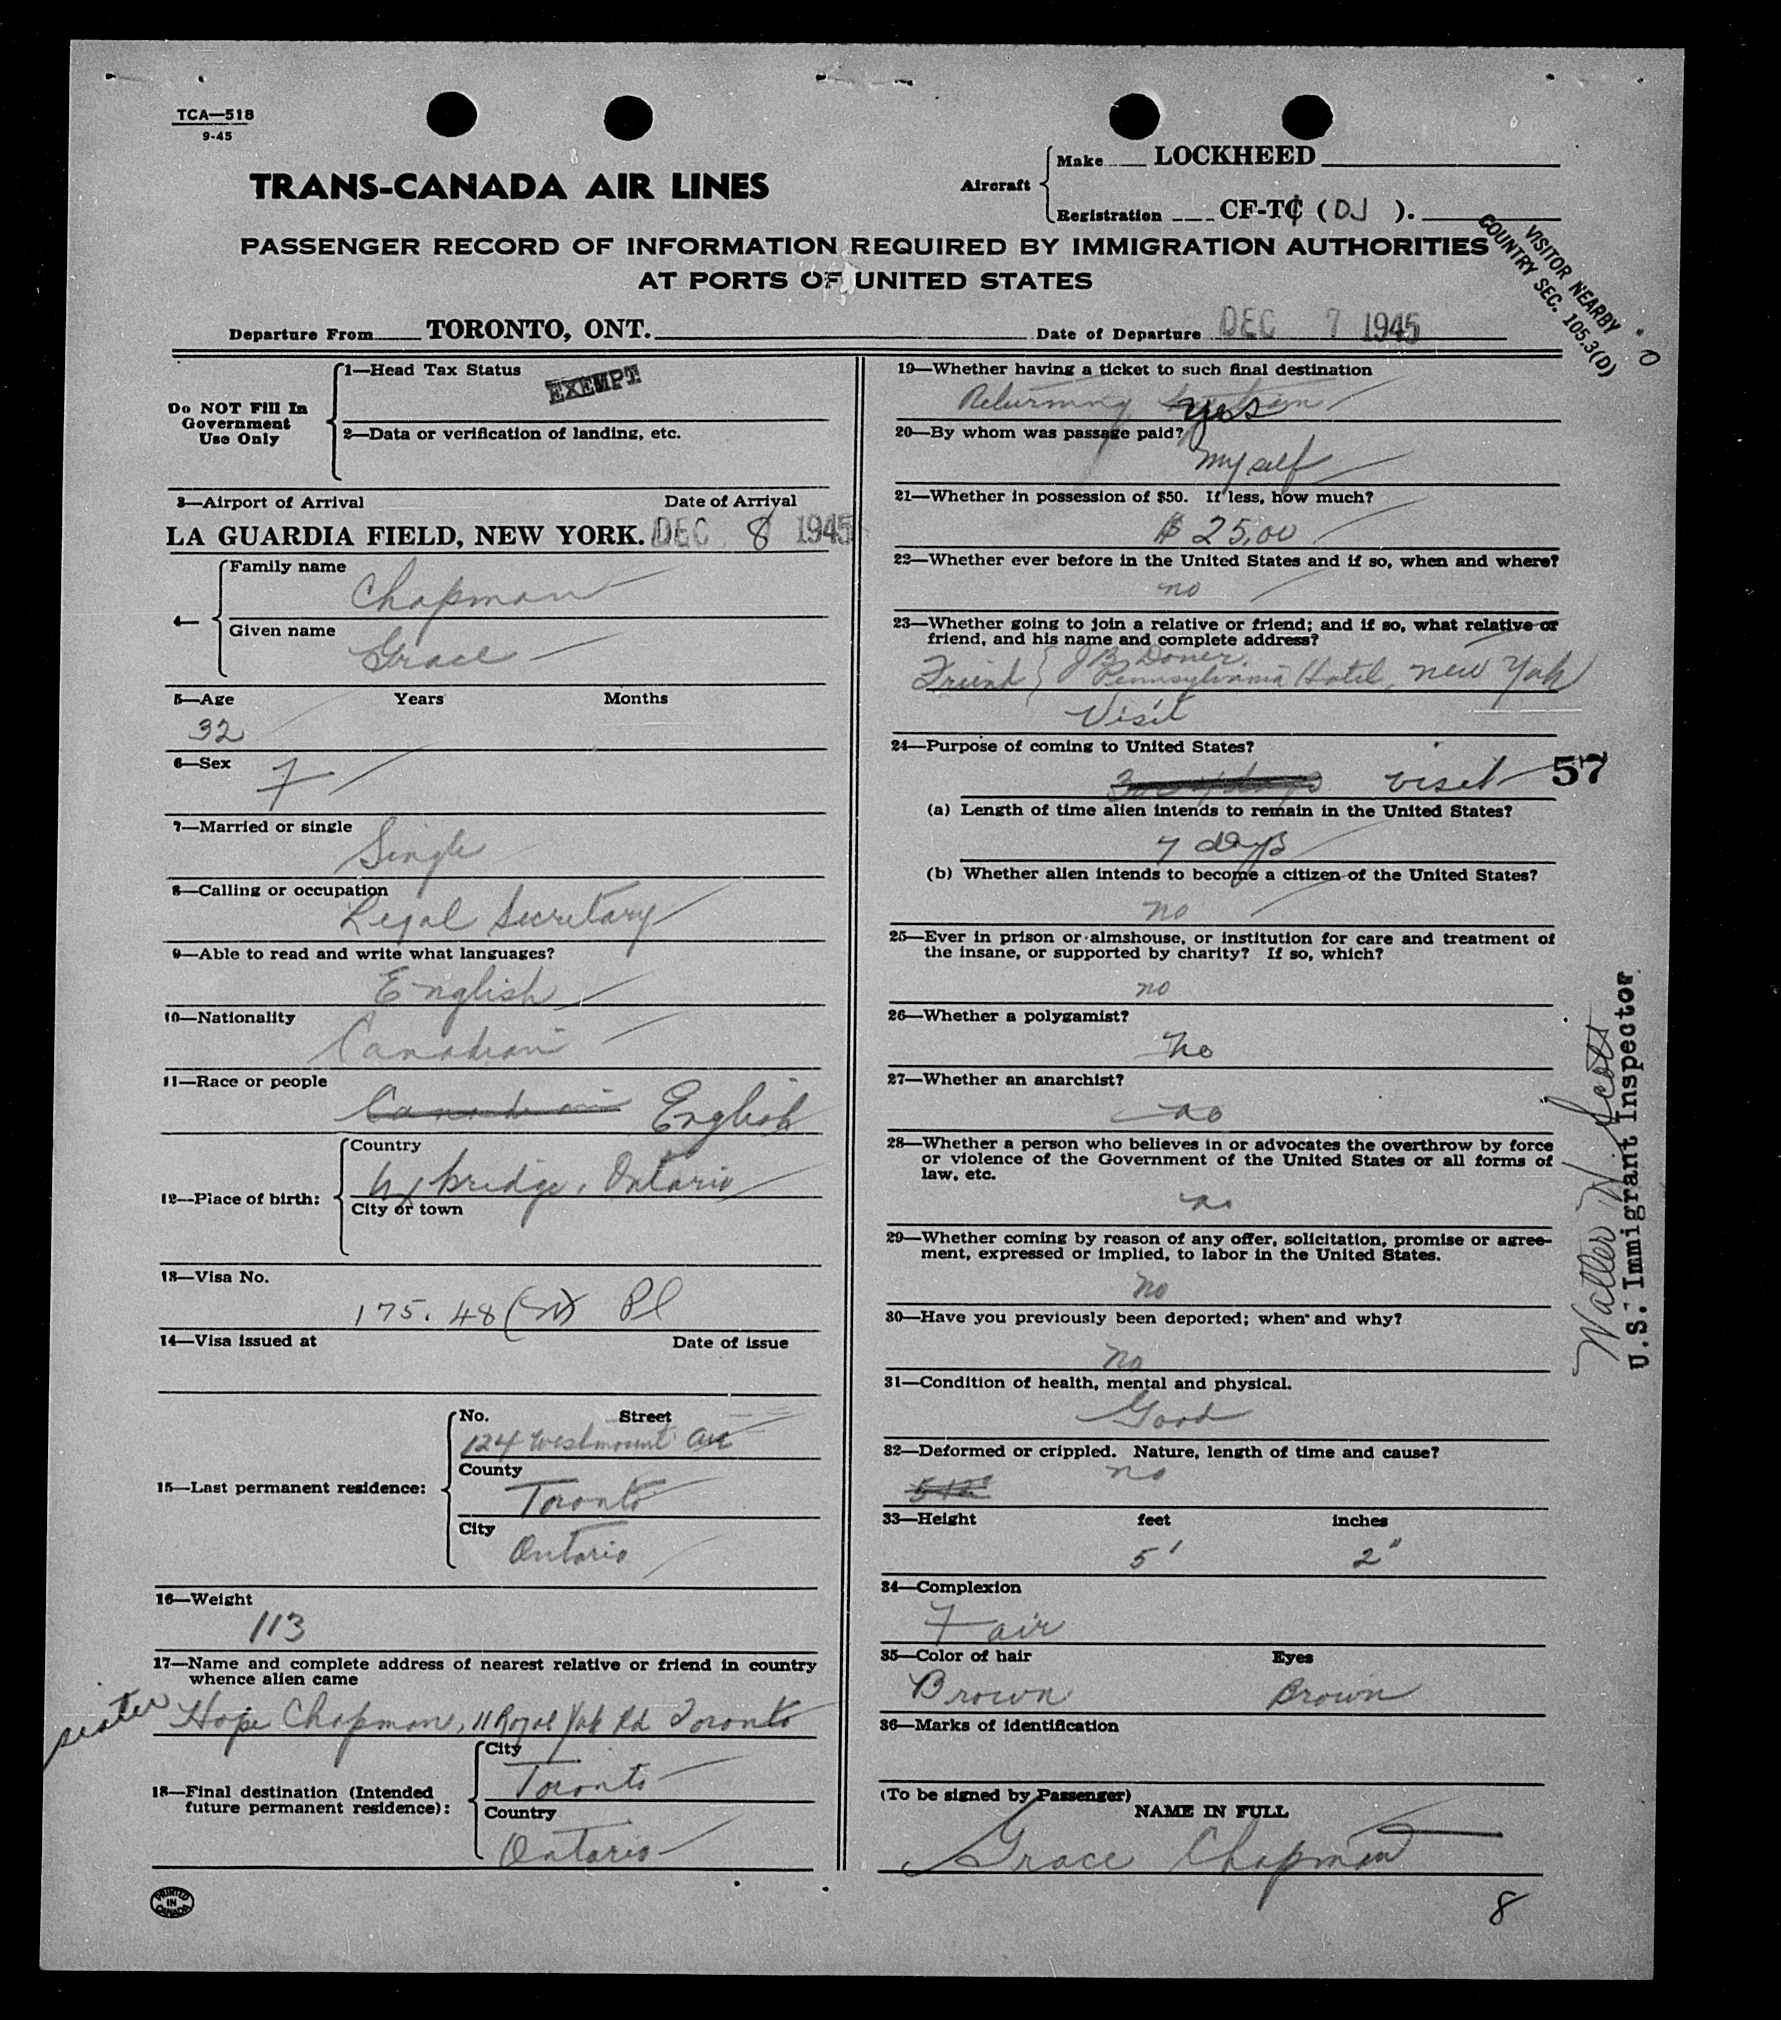 TCA—518
9-45
TRANS-CANADA AIR LINES
Aircraft
Make LOCKHEED
Registration CF-TC (DJ).
PASSENGER RECORD OF INFORMATION REQUIRED BY IMMIGRATION AUTHORITIES
AT PORTS OF UNITED STATES
VISITOR NEARBY
COUNTRY SEC. 105.3(D)
Departure From TORONTO, ONT. Date of Departure DEC 7 1945
Do NOT Fill In
Government
Use Only
1—Head Tax Status
EXEMPT
2—Data or verification of landing, etc.
3—Airport of Arrival Date of Arrival
LA GUARDIA FIELD, NEW YORK. DEC 8 1945
4—
Family name
Chapman
Given name
Grace
5—Age Years Months
32
6—Sex
F
7—Married or single
Single
8—Calling or occupation
Legal Secretary
9—Able to read and write what languages?
English
10—Nationality
Canadian
11—Race or people
Canadian English
12—Place of birth:
Country
Uxbridge, Ontario
City or town
13—Visa No.
175. 48
14—Visa issued at Date of issue
15—Last permanent residence:
No. Street
124 Westmount Ave
County
Toronto
City
Ontario
16—Weight
113
17—Name and complete address of nearest relative or friend in country
whence alien came
sister Hope Chapman, 11 Royal York Rd Toronto
18—Final destination (Intended
future permanent residence):
City
Toronto
Country
Ontario
PRINTED
IN
CANADA
19—Whether having a ticket to such final destination
Returning yes
20—By whom was passage paid?
myself
21—Whether in possession of $50. If less, how much?
$ 25.00
22—Whether ever before in the United States and if so, when and where?
no
23—Whether going to join a relative or friend; and if so, what relative or
friend, and his name and complete address?
Friend J B Doner
Pennsylvania Hotel, New York
Visit
24—Purpose of coming to United States?
visit
57
(a) Length of time alien intends to remain in the United States?
7 days
(b) Whether alien intends to become a citizen of the United States?
no
25—Ever in prison or almshouse, or institution for care and treatment of
the insane, or supported by charity? If so, which?
no
26—Whether a polygamist?
no
27—Whether an anarchist?
no
28—Whether a person who believes in or advocates the overthrow by force
or violence of the Government of the United States or all forms of
law, etc.
no
29—Whether coming by reason of any offer, solicitation, promise or agree-
ment, expressed or implied, to labor in the United States.
no
30—Have you previously been deported; when and why?
no
31—Condition of health, mental and physical.
Good
32—Deformed or crippled. Nature, length of time and cause?
no
33—Height feet inches
5' 2"
34—Complexion
Fair
35—Color of hair Eyes
Brown Brown
36—Marks of identification
(To be signed by Passenger)
NAME IN FULL
Grace Chapman
8
Walter N Scott
U.S. Immigrant Inspector